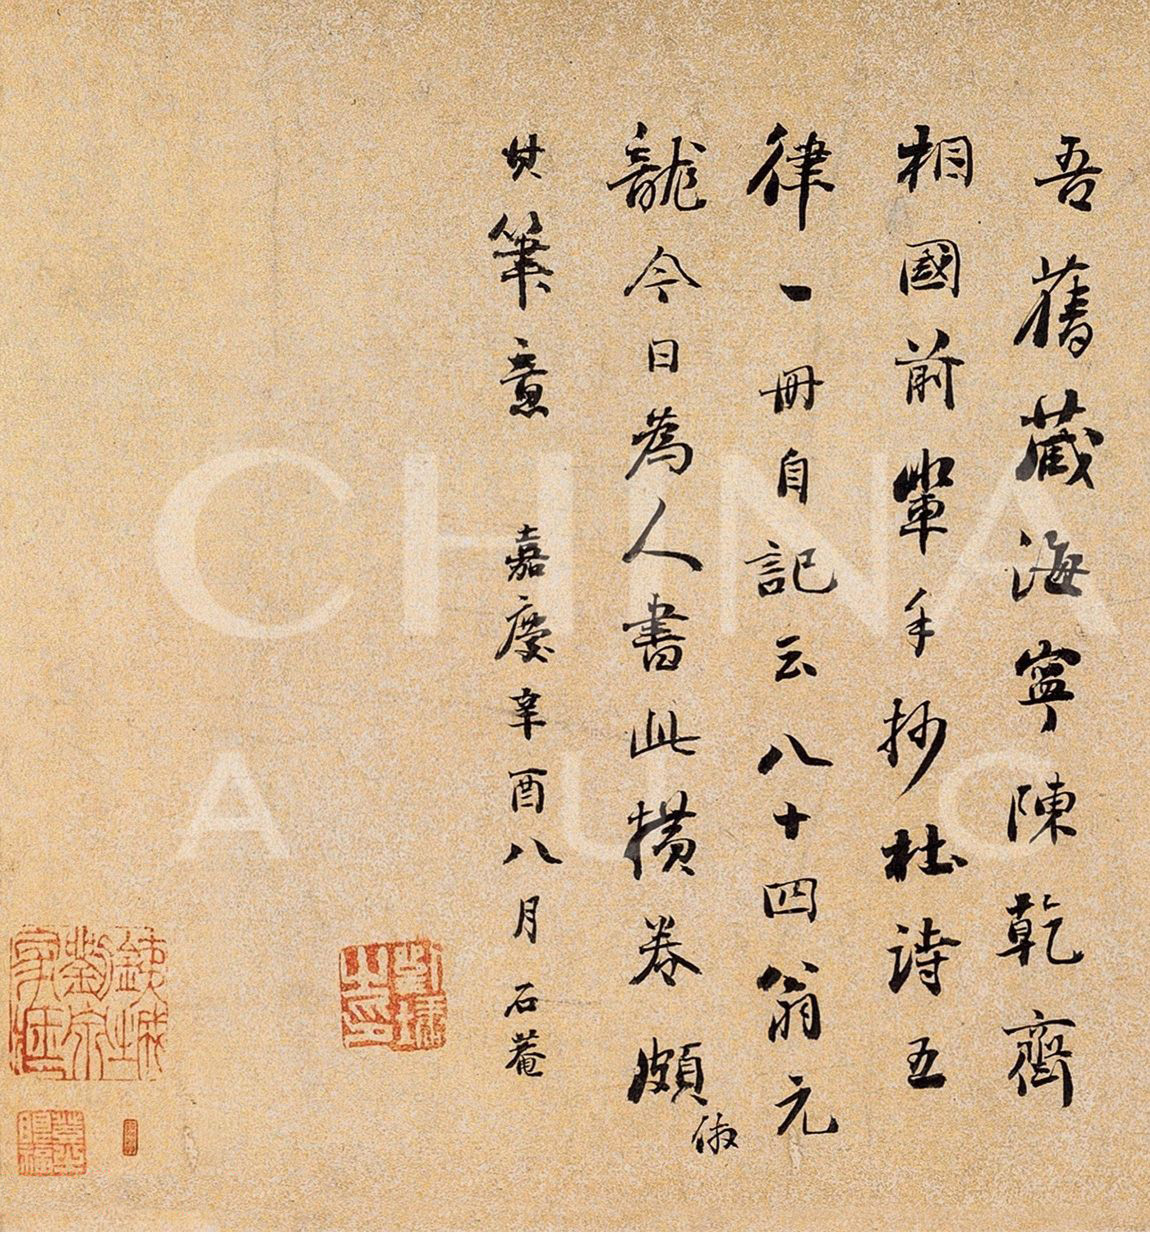 吾舊藏海寧陳乾齋
相國前輩手抄杜詩五
律一冊自記云八十四翁元
龍今日為人書此橫卷頗
倣
其筆意 嘉慶辛酉八月 石菴
劉墉之印
CHINA
AUC